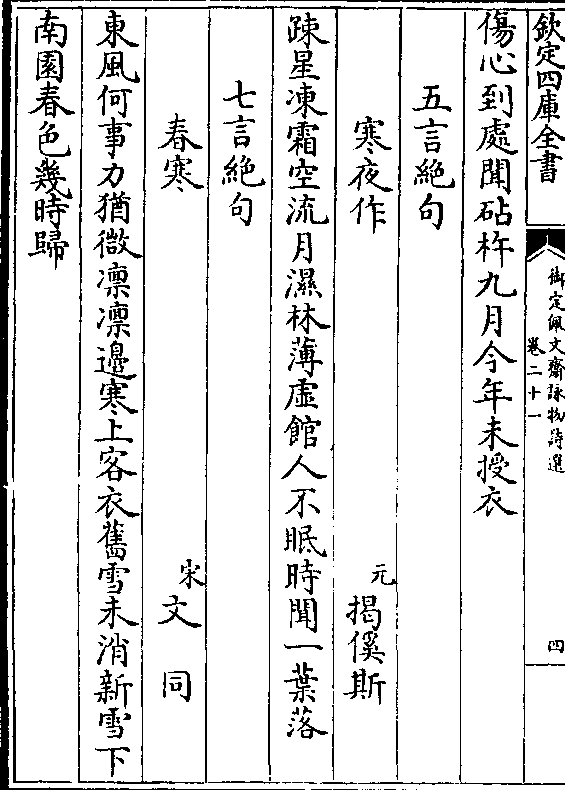 欽定四庫全書
御定佩文齋詠物詩選
卷二十一
四
傷心到處聞砧杵九月今年未授衣
五言絶句
寒夜作
元
揭傒斯
踈星凍霜空流月濕林薄虛館人不眠時聞一葉落
七言絶句
春寒
宋
文同
東風何事力猶微凛凛邊寒上客衣舊雪未消新雪下
南園春色幾時歸